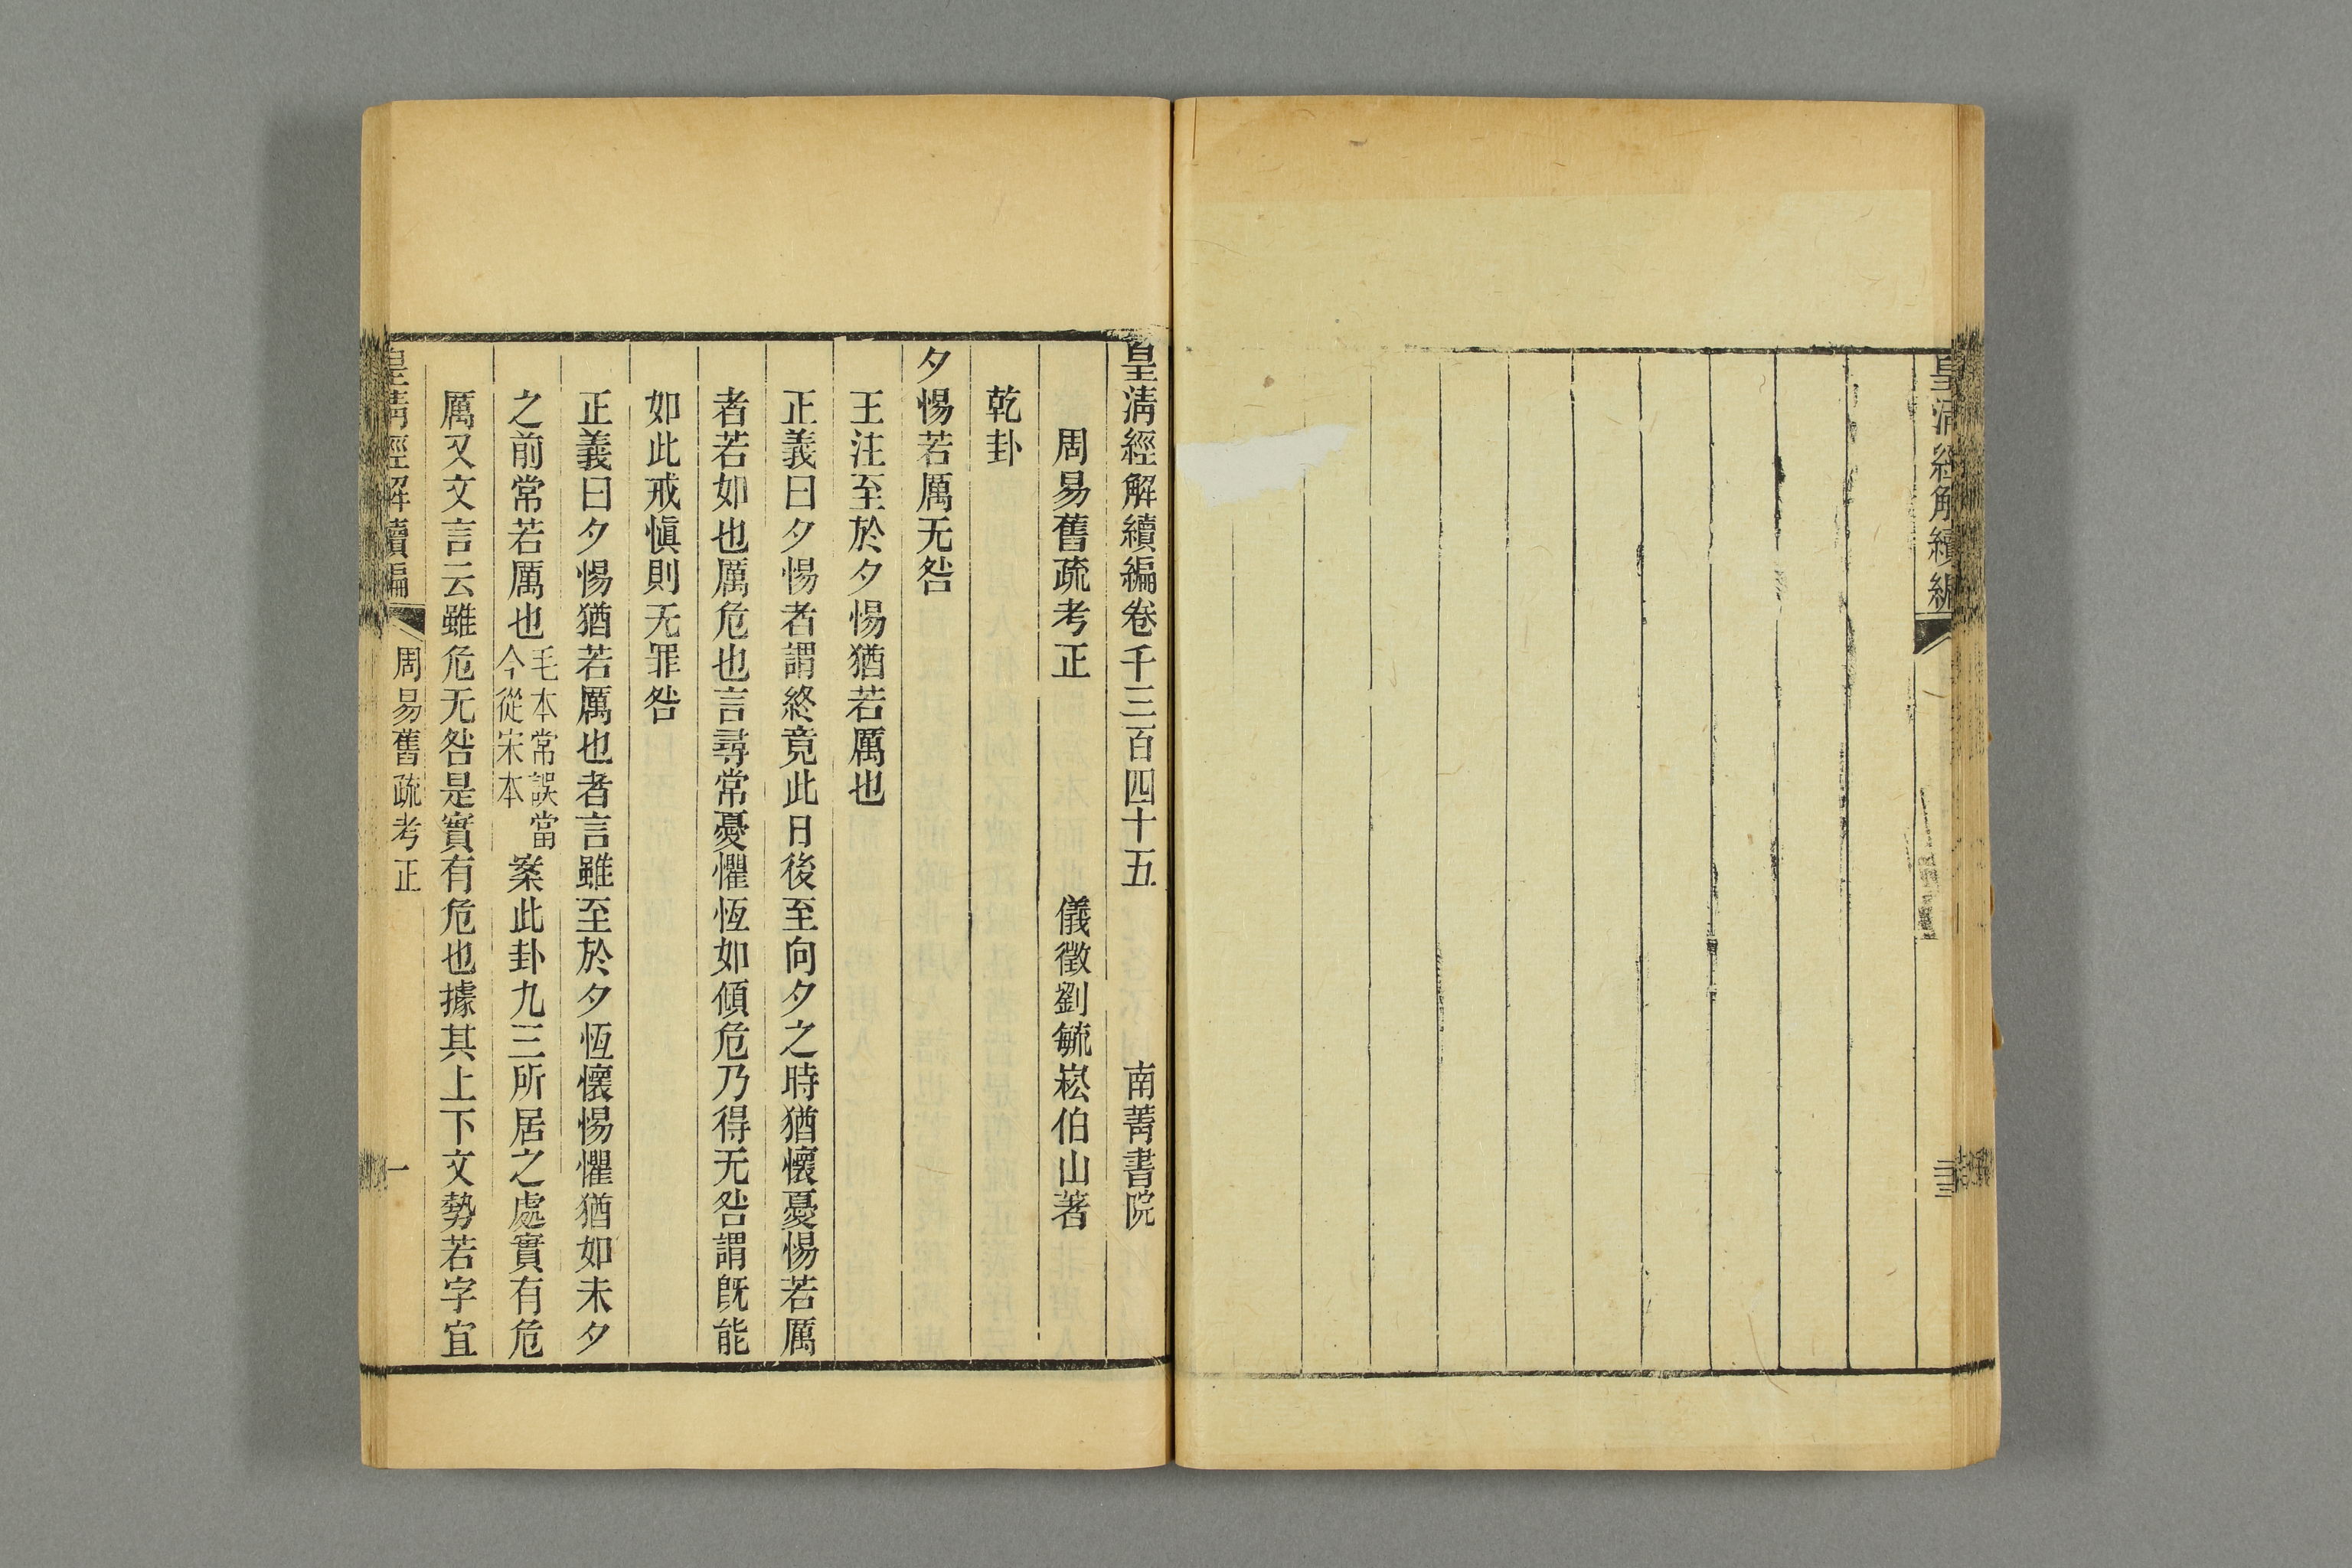 皇清經解續編
皇清經解續編卷千三百四十五　南菁書院
周易舊疏考正　儀徵劉毓崧伯山著
乾卦
夕惕若厲无咎
王注至於夕惕猶若厲也
正義曰夕惕者謂終竟此日後至向夕之時猶懷憂惕若厲
者若如也厲危也言尋常憂懼恆如傾危乃得无咎謂旣能
如此戒愼則无罪咎
正義曰夕惕猶若厲也者言雖至於夕恆懷惕懼猶如未夕
之前常若厲也毛本常誤當今從宋本案此卦九三所居之處實有危
厲又文言云雖危无咎是實有危也據其上下文勢若字宜
皇清經解續編　周易舊疏考正　一